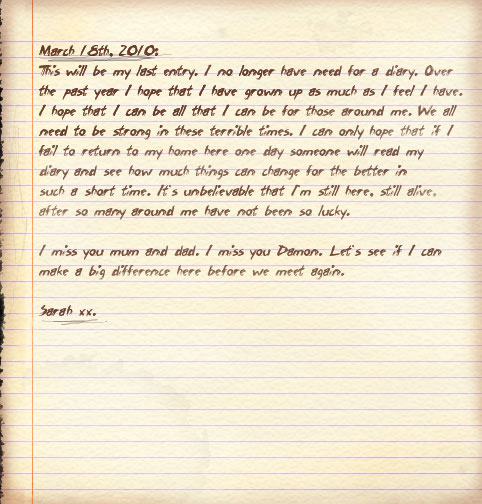 March 18th, 2010:
This will be my last entry. I no longer have need for a diary. Over
the past year I hope that I have grown up as much as I feel I have.
I hope that I can be all that I can be for those around me. We all
need to be strong in these terrible times. I can only hope that if I
fail to return to my home here one day someone will read my
diary and see how much things can change for the better in
such a short time. It's unbelievable that I'm still here, still alive,
after so many around me have not been so lucky.
I miss you mum and dad. I miss you Damon. Let's see if I can
make a big difference here before we meet again.
Sarah xx.